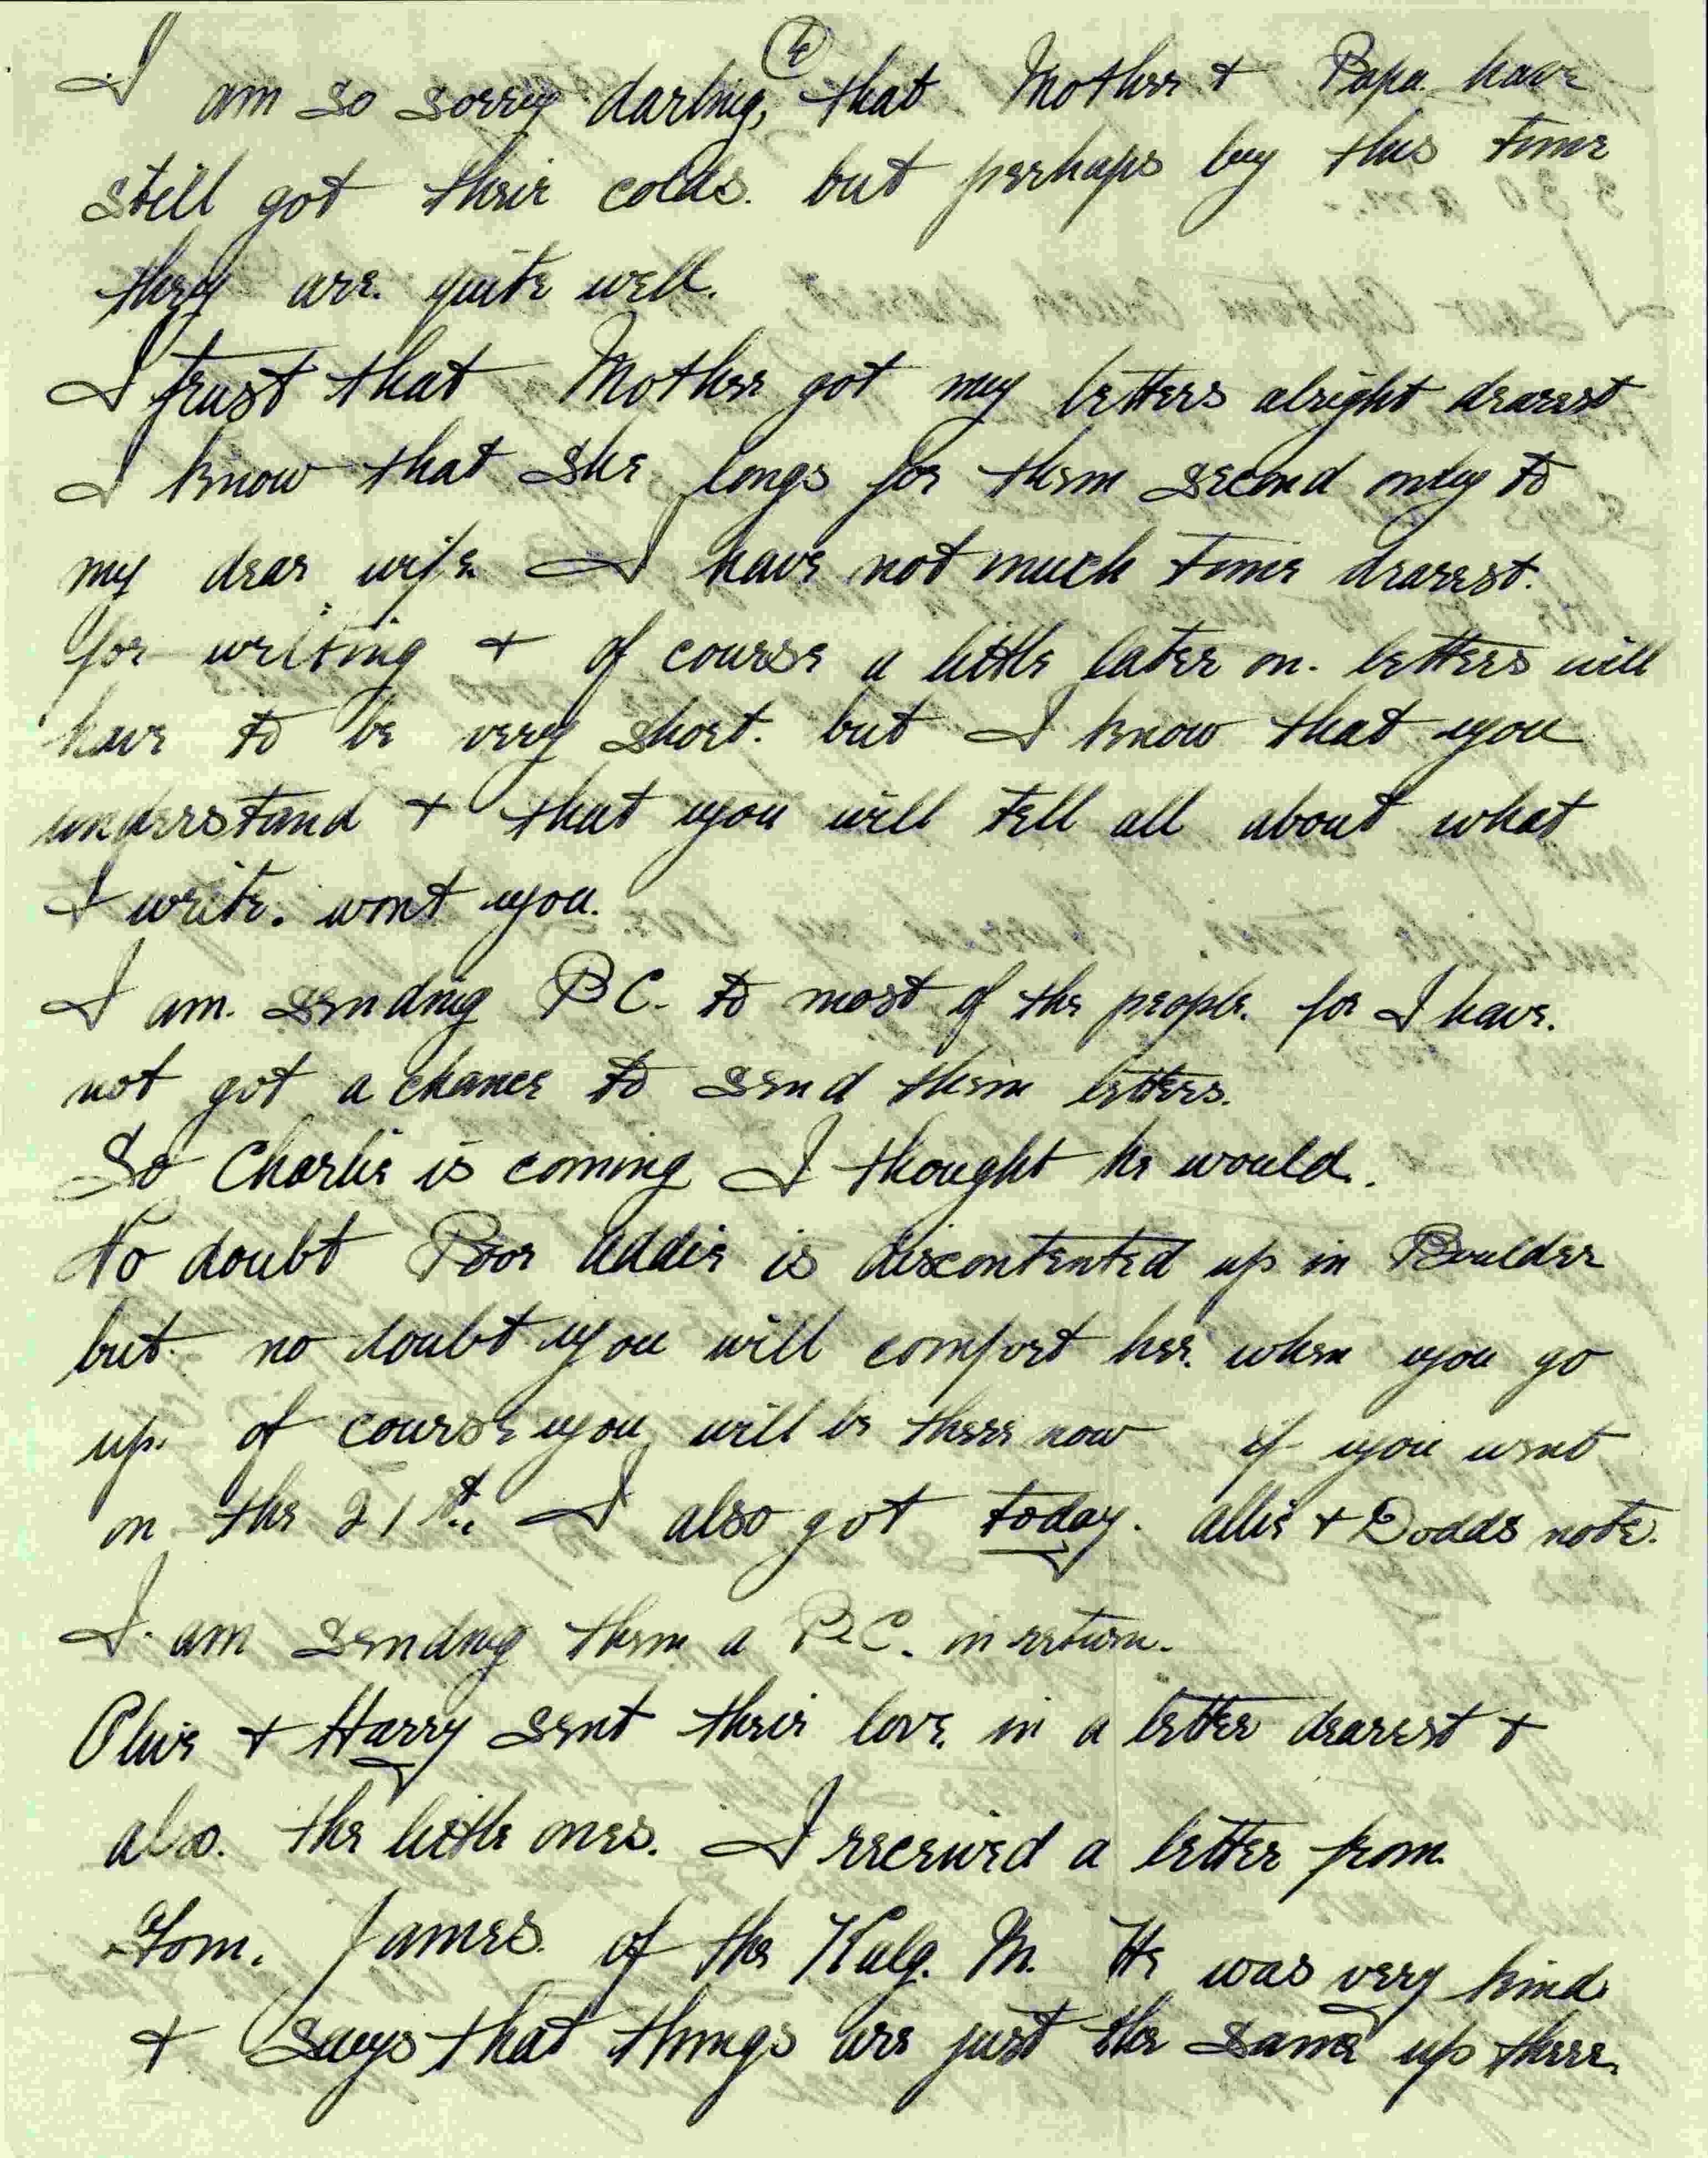 (4)
I am so sorry darling, that Mother + Papa have
still got their colds. but perhaps by this time
they are. quite well.
I trust that Mother got my letters alright dearest
I know that she longs for them second only to
my dear wife. I have not much time dearest.
for writing + of course a little later on. letters will
have to be very short. but I know that you
understand + that you will tell all about what
I write. wont you.
I am. sending P.C. to most of the people. for I have.
not got a chance to send them letters.
So Charlie is coming I thought he would.
No doubt Poor Addie is discontented up in Boulder
but. no doubt you will comfort her. when you go
up. of course you will be there now if you went
on the 21st. I also got today. Allie + Dodds note.
I. am sending them a P.C. in return.
Olive + Harry sent their love. in a letter dearest +
also. the little ones. I received a letter from.
Tom. James. of the Kalg. M. He was very kind
+ says that things are just the same up there.